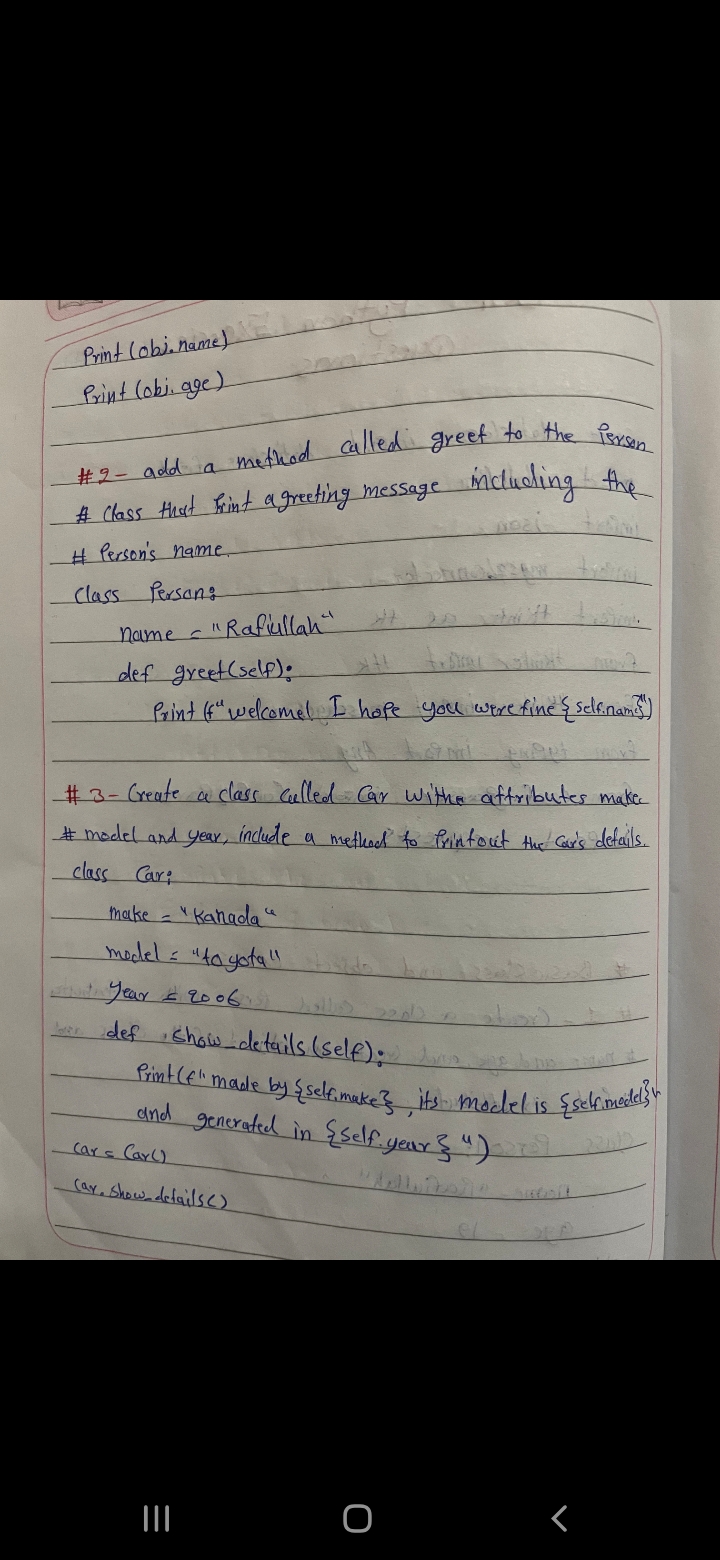 Print (obj.name)
Print (obj.age)
#2- add a method called greet to the Person
# Class that Print a greeting message including the
# Person's name.
Class Person:
name = "Rafiullah"
def greet(self):
Print (f"welcome! I hope you were fine {self.name}")
#3- Create a class called Car withe attributes make
# model and year, include a method to Printout the Car's details.
class Car:
make = "Kanada"
model = "toyota"
Year = 2006
def show_details(self):
Print(f" made by {self.make}, its model is {self.model}\
and generated in {self.year} ")
Car = Car()
Car.show_details()